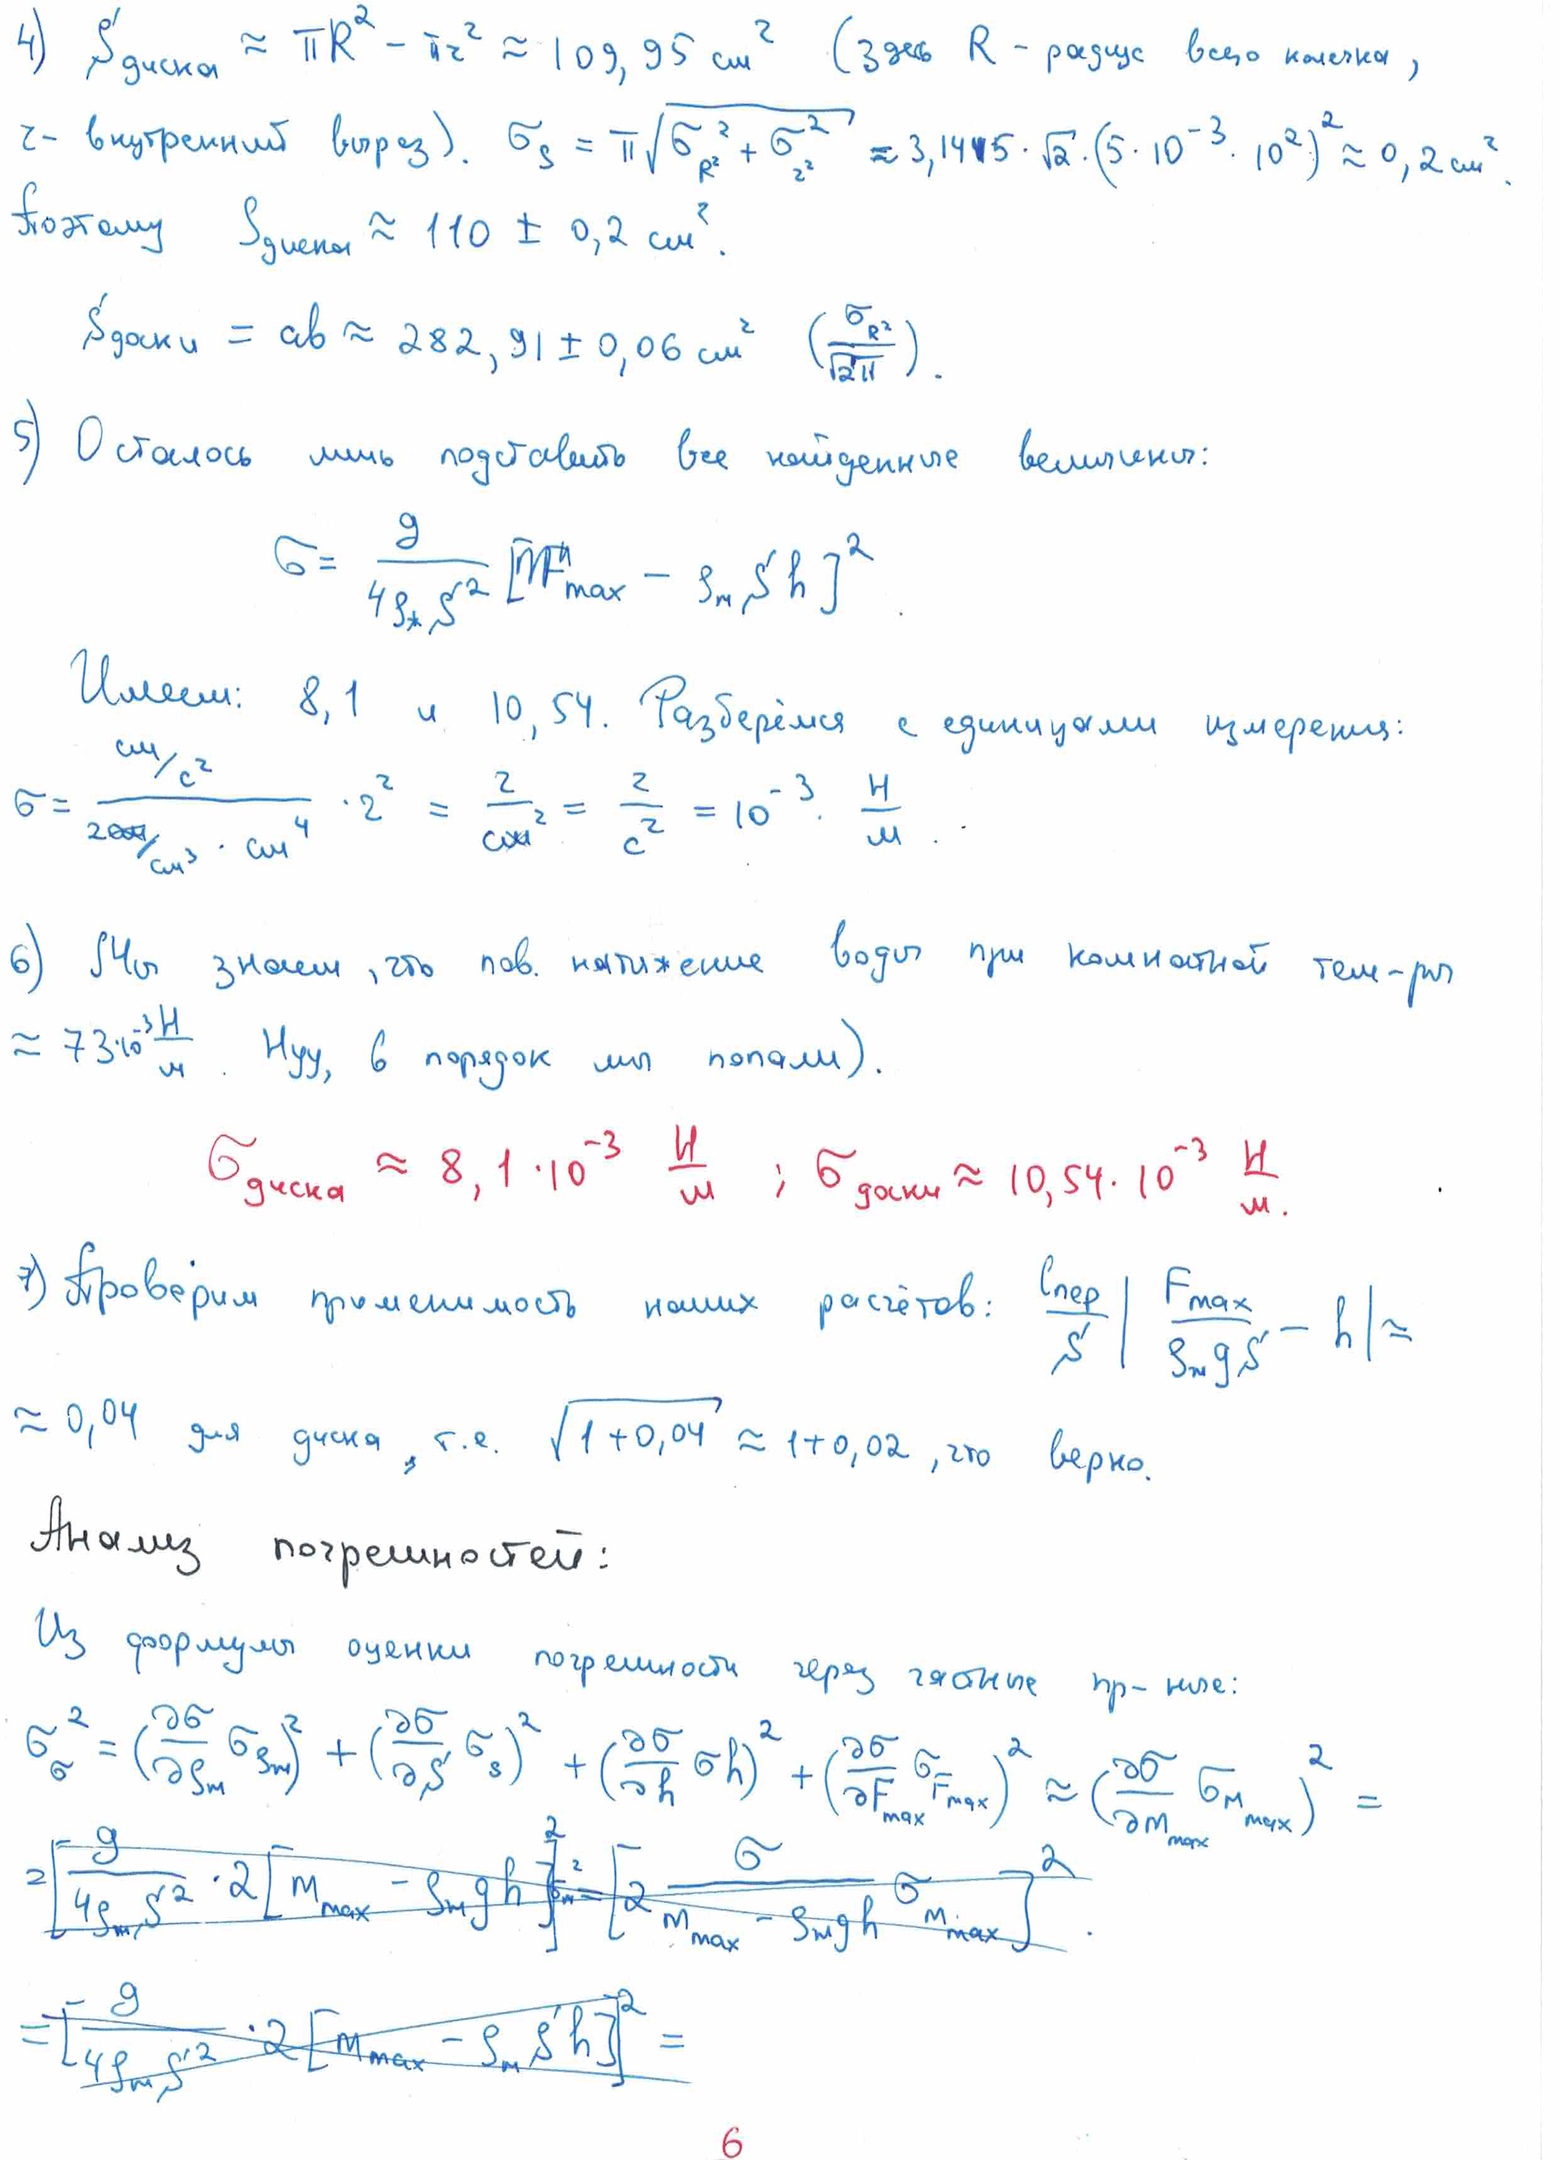 4) Sдиска ≈ πR² − πr² ≈ 109,95 см² (здесь R - радиус всего колечка,
r - внутренний вырез). σ_S = π√(σ_{R²}² + σ_{r²}²) ≈ 3,1415 · √2 · (5 · 10⁻³ · 10²)² ≈ 0,2 см².
Поэтому Sдиска ≈ 110 ± 0,2 см².
Sдоски = ab ≈ 282,91 ± 0,06 см² (σ_{R²}/√2π).
5) Осталось лишь подставить все найденные величины:
σ = g/(4ρ_ж S²) [m_max − ρ_ж S h]².
Имеем: 8,1 и 10,54. Разберёмся с единицами измерения:
σ = (см/с²)/(г/см³ · см⁴) · г² = г/с² = 10⁻³ · Н/м.
6) Мы знаем, что пов. натяжение воды при комнатной тем-ры
≈ 73·10⁻³ Н/м. Нуу, в порядок мы попали).
σдиска ≈ 8,1 · 10⁻³ Н/м ; σдоски ≈ 10,54 · 10⁻³ Н/м.
7) Проверим применимость наших расчётов: lпер/S | F_max/(ρ_ж g S) − h | ≈
≈ 0,04 для диска, т.е. √(1+0,04) ≈ 1+0,02, что верно.
Анализ погрешностей:
Из формулы оценки погрешности через частные пр-ные:
σ_σ² = (∂σ/∂ρ_ж σ_{ρ_ж})² + (∂σ/∂S σ_S)² + (∂σ/∂h σh)² + (∂σ/∂F_max σ_{F_max})² ≈ (∂σ/∂m_max σ_{m_max})² =
= [g/(4ρ_ж S²) · 2[m_max − ρ_ж g h] σ_m]² = [2 σ/(m_max − ρ_ж g h) σ_{m_max}]².
= [g/(4ρ_ж S²) · 2[m_max − ρ_ж S h]]² =
6